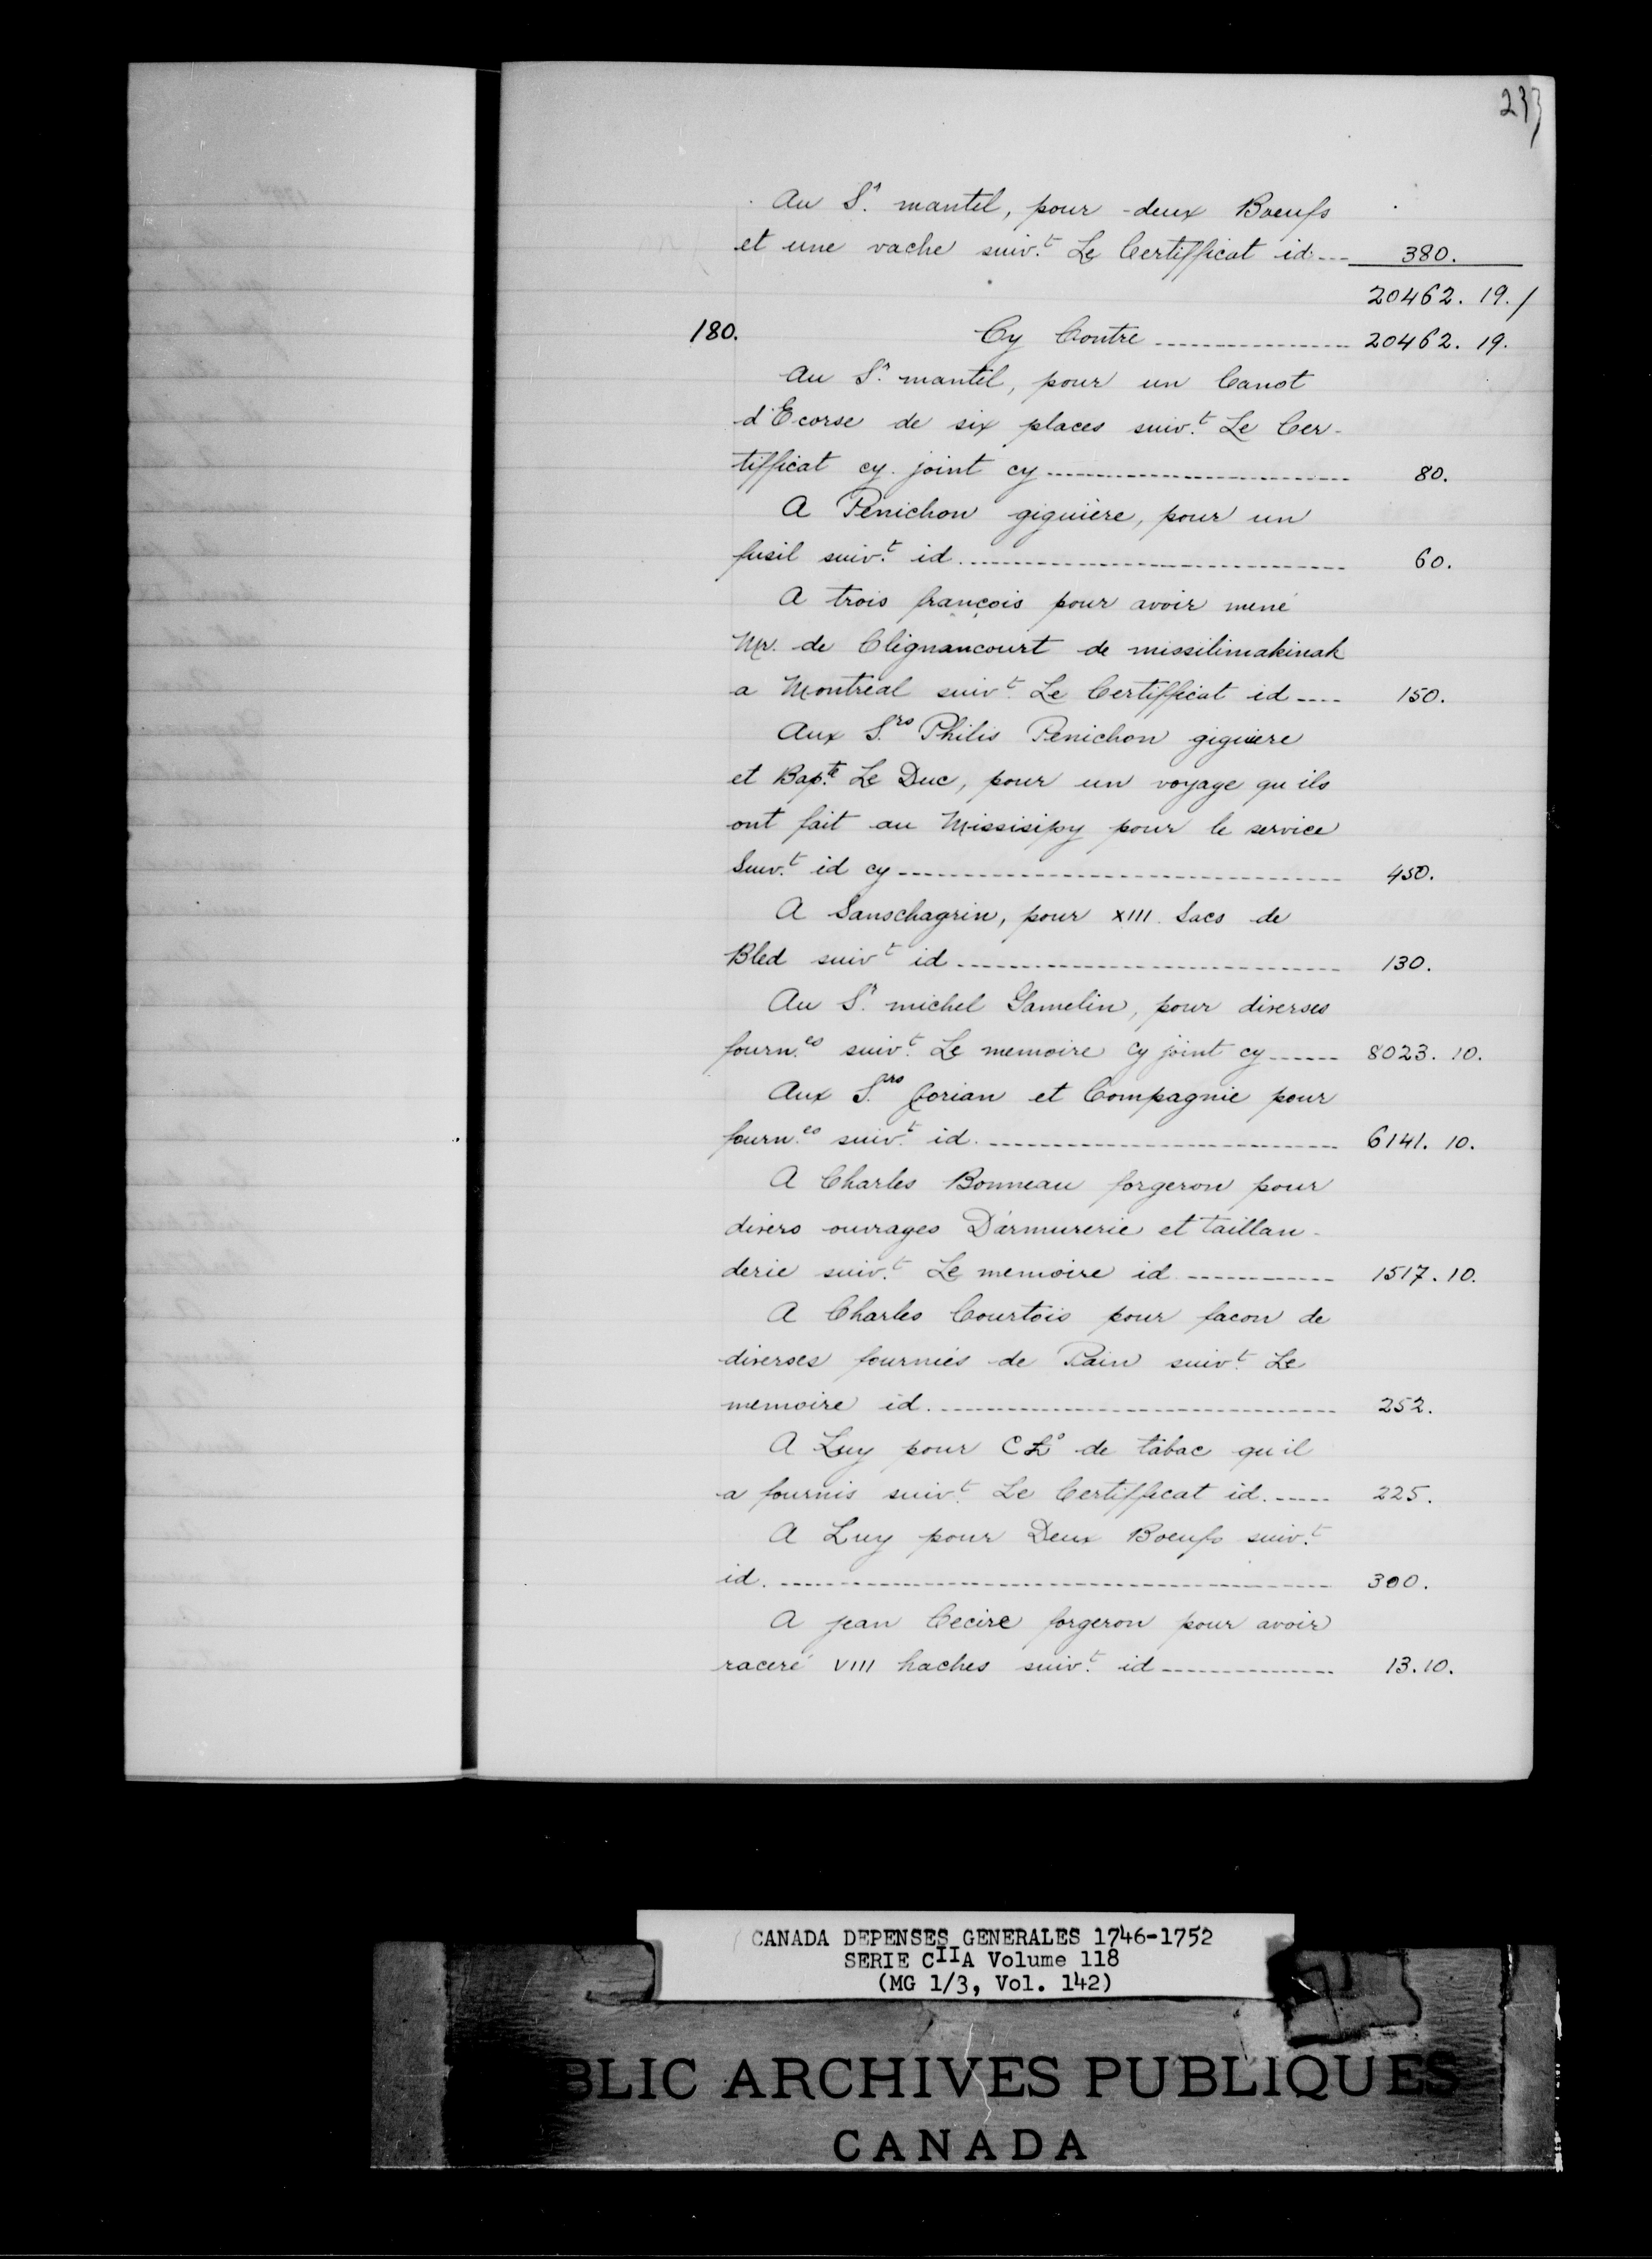 233
Au Sr. mantel, pour deux Boeufs
et une vache suiv.t Le Certifficat id --- 380.
20462. 19. /
180. Cy Contre ---------- 20462. 19.
Au Sr. mantel, pour un Canot
d'Ecorse de six places suiv.t Le Cer-
tifficat cy joint cy ---------- 80.
A Penichon giguière, pour un
fusil suiv.t id ---------- 60.
A trois françois pour avoir mené
Mr. de Clignancourt de missilimakinak
a Montréal suiv.t Le Certifficat id ---- 150.
Aux S.rs Philis Penichon giguiere
et Bap.te Le Duc, pour un voyage qu ils
ont fait au Missisipy pour le service
Suiv.t id cy ---------- 450.
A Sanschagrin, pour XIII. Sacs de
Bled suiv.t id ---------- 130.
Au Sr. michel Gamelin, pour diverses
fourn.es suiv.t Le memoire cy joint cy ------ 8023. 10.
Aux S.rs Corian et Compagnie pour
fourn.es suiv.t id ---------- 6141. 10.
A Charles Bonneau forgeron pour
divers ouvrages D'armurerie et taillan-
derie suiv.t Le memoire id ---------- 1517. 10.
A Charles Courtois pour facon de
diverses fourniés de Pain suiv.t Le
memoire id ---------- 252.
A Luy pour C L° de tabac qu il
a fournis suiv.t Le Certifficat id. ----- 225.
A Luy pour Deux Boeufs suiv.t
id. ---------- 300.
A jean Cecire forgeron pour avoir
raceré VIII haches suiv.t id ---------- 13. 10.
CANADA DEPENSES GENERALES 1746-1752
SERIE CIIA Volume 118
(MG 1/3, Vol. 142)
BLIC ARCHIVES PUBLIQUES
CANADA